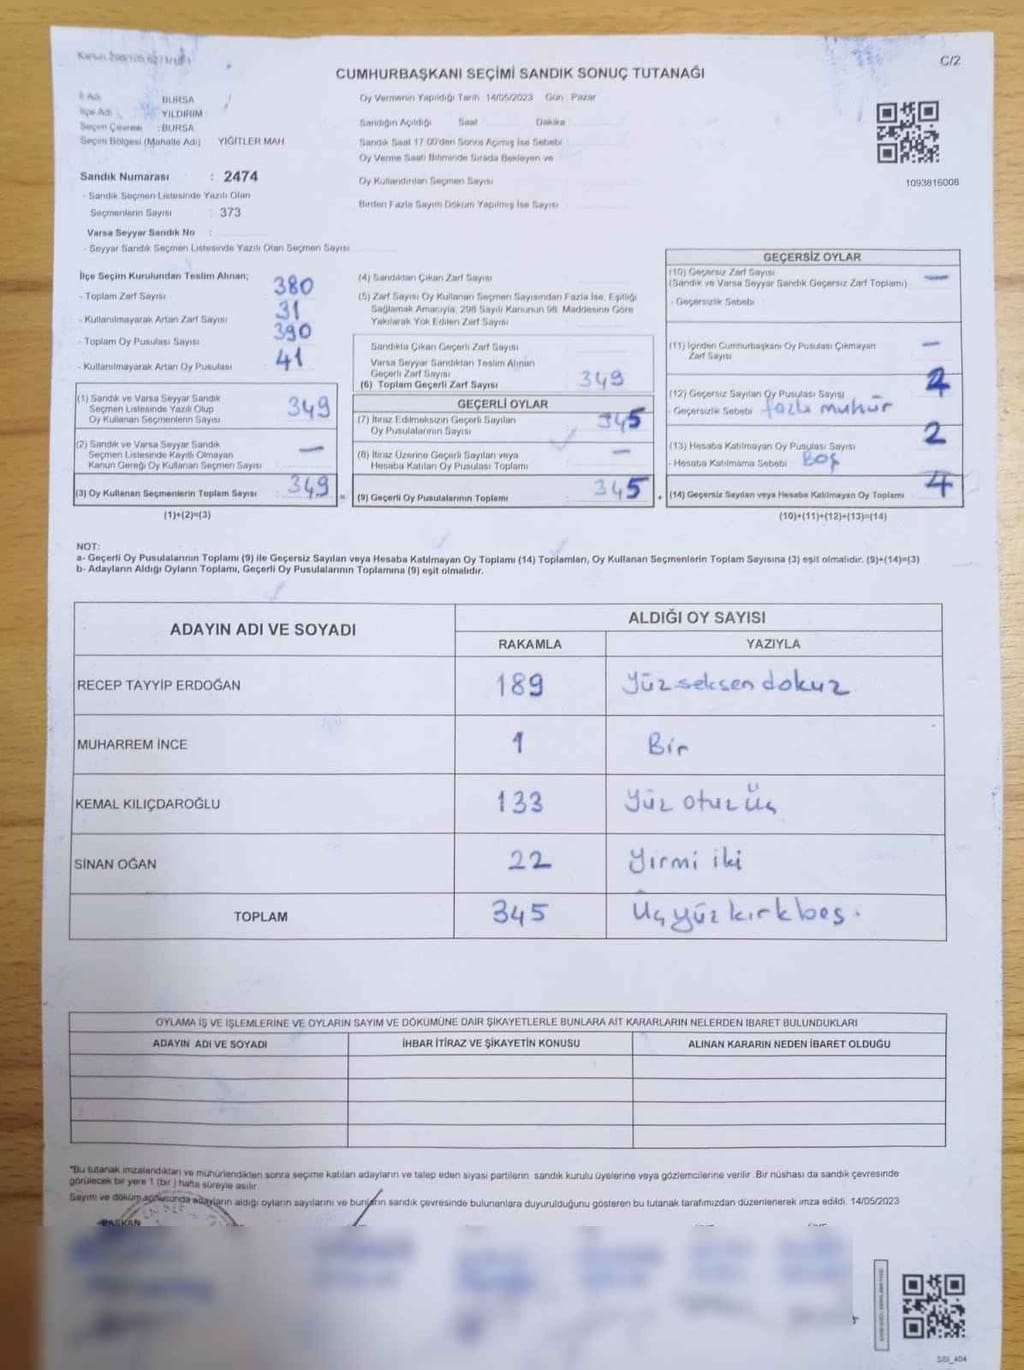 C/2
CUMHURBAŞKANI SEÇİMİ SANDIK SONUÇ TUTANAĞI
İl Adı BURSA
İlçe Adı YILDIRIM
Seçim Çevresi : BURSA
Seçim Bölgesi (Mahalle Adı) YİĞİTLER MAH
Oy Vermenin Yapıldığı Tarih 14/05/2023 Gün Pazar
Sandığın Açıldığı Saat Dakika
Sandık Saat 17.00'den Sonra Açılmış İse Sebebi
Oy Verme Saati Bitiminde Sırada Bekleyen ve
Oy Kullandırılan Seçmen Sayısı
Birden Fazla Sayım Döküm Yapılmış İse Sayısı
1093816008
Sandık Numarası : 2474
- Sandık Seçmen Listesinde Yazılı Olan
Seçmenlerin Sayısı : 373
Varsa Seyyar Sandık No :
- Seyyar Sandık Seçmen Listesinde Yazılı Olan Seçmen Sayısı
İlçe Seçim Kurulundan Teslim Alınan;
- Toplam Zarf Sayısı 380
- Kullanılmayarak Artan Zarf Sayısı 31
- Toplam Oy Pusulası Sayısı 390
- Kullanılmayarak Artan Oy Pusulası 41
(1) Sandık ve Varsa Seyyar Sandık
Seçmen Listesinde Yazılı Olup
Oy Kullanan Seçmenlerin Sayısı 349
(2) Sandık ve Varsa Seyyar Sandık
Seçmen Listesinde Kayıtlı Olmayan
Kanun Gereği Oy Kullanan Seçmen Sayısı —
(3) Oy Kullanan Seçmenlerin Toplam Sayısı 349
(1)+(2)=(3)
(4) Sandıktan Çıkan Zarf Sayısı
(5) Zarf Sayısı Oy Kullanan Seçmen Sayısından Fazla İse, Eşitliği
Sağlamak Amacıyla, 298 Sayılı Kanunun 98. Maddesine Göre
Yakılarak Yok Edilen Zarf Sayısı
Sandıkta Çıkan Geçerli Zarf Sayısı
Varsa Seyyar Sandıktan Teslim Alınan
Geçerli Zarf Sayısı
(6) Toplam Geçerli Zarf Sayısı 349
GEÇERLİ OYLAR
(7) İtiraz Edilmeksizin Geçerli Sayılan
Oy Pusulalarının Sayısı 345
(8) İtiraz Üzerine Geçerli Sayılan veya
Hesaba Katılan Oy Pusulası Toplamı —
= (9) Geçerli Oy Pusulalarının Toplamı 345
GEÇERSİZ OYLAR
(10) Geçersiz Zarf Sayısı
(Sandık ve Varsa Seyyar Sandık Geçersiz Zarf Toplamı) —
- Geçersizlik Sebebi
(11) İçinden Cumhurbaşkanı Oy Pusulası Çıkmayan
Zarf Sayısı —
(12) Geçersiz Sayılan Oy Pusulası Sayısı
- Geçersizlik Sebebi fazla mühür
(13) Hesaba Katılmayan Oy Pusulası Sayısı 2
- Hesaba Katılmama Sebebi Boş
+ (14) Geçersiz Sayılan veya Hesaba Katılmayan Oy Toplamı 4
(10)+(11)+(12)+(13)=(14)
NOT:
a- Geçerli Oy Pusulalarının Toplamı (9) ile Geçersiz Sayılan veya Hesaba Katılmayan Oy Toplamı (14) Toplamları, Oy Kullanan Seçmenlerin Toplam Sayısına (3) eşit olmalıdır. (9)+(14)=(3)
b- Adayların Aldığı Oyların Toplamı, Geçerli Oy Pusulalarının Toplamına (9) eşit olmalıdır.
ADAYIN ADI VE SOYADI ALDIĞI OY SAYISI
RAKAMLA YAZIYLA
RECEP TAYYİP ERDOĞAN 189 Yüzseksendokuz
MUHARREM İNCE 1 Bir
KEMAL KILIÇDAROĞLU 133 Yüz otuz üç
SİNAN OĞAN 22 Yirmi iki
TOPLAM 345 Üçyüzkırkbeş.
OYLAMA İŞ VE İŞLEMLERİNE VE OYLARIN SAYIM VE DÖKÜMÜNE DAİR ŞİKAYETLERLE BUNLARA AİT KARARLARIN NELERDEN İBARET BULUNDUKLARI
ADAYIN ADI VE SOYADI İHBAR İTİRAZ VE ŞİKAYETİN KONUSU ALINAN KARARIN NEDEN İBARET OLDUĞU
*Bu tutanak imzalandıktan ve mühürlendikten sonra seçime katılan adayların ve talep eden siyasi partilerin sandık kurulu üyelerine veya gözlemcilerine verilir. Bir nüshası da sandık çevresinde
görülecek bir yere 1 (bir) hafta süreyle asılır.
Sayım ve döküm sonucunda adayların aldığı oyların sayılarını ve bunların sandık çevresinde bulunanlara duyurulduğunu gösteren bu tutanak tarafımızdan düzenlenerek imza edildi. 14/05/2023
BAŞKAN
SSI_404